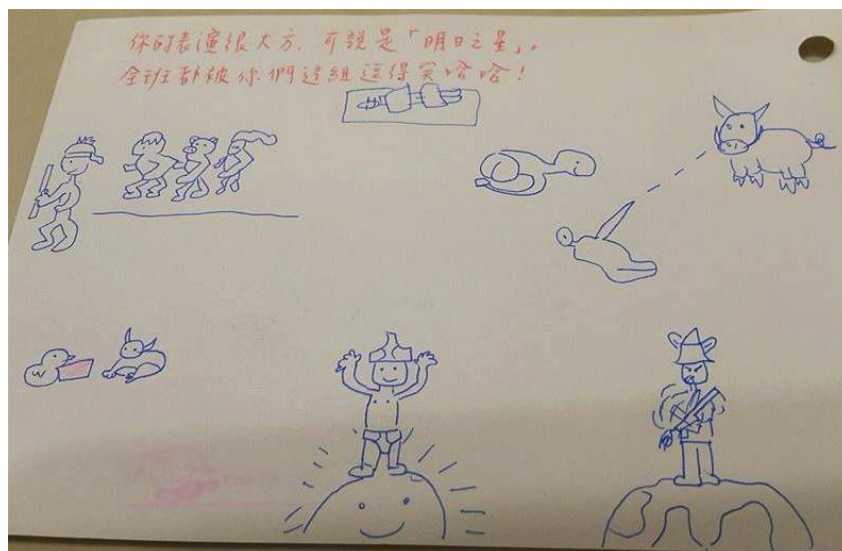 你的表演很大方，可說是「明日之星」。
全班都被你們這組逗得笑哈哈！